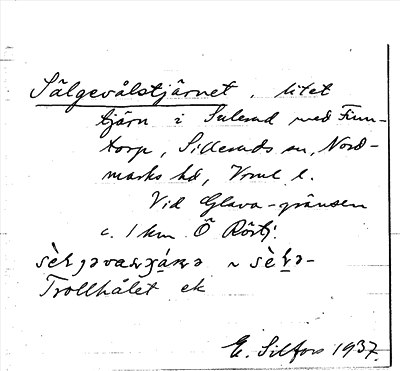 Sälgevålstjärnet, litet
tjärn i Sulerud med Finn-
torp, Silleruds sn, Nord-
marks hd, Vrml. l.
Vid Glava-gränsen
c. 1 km Ö Rörtj.
Trollhålet ek
E. Silfors 1937.